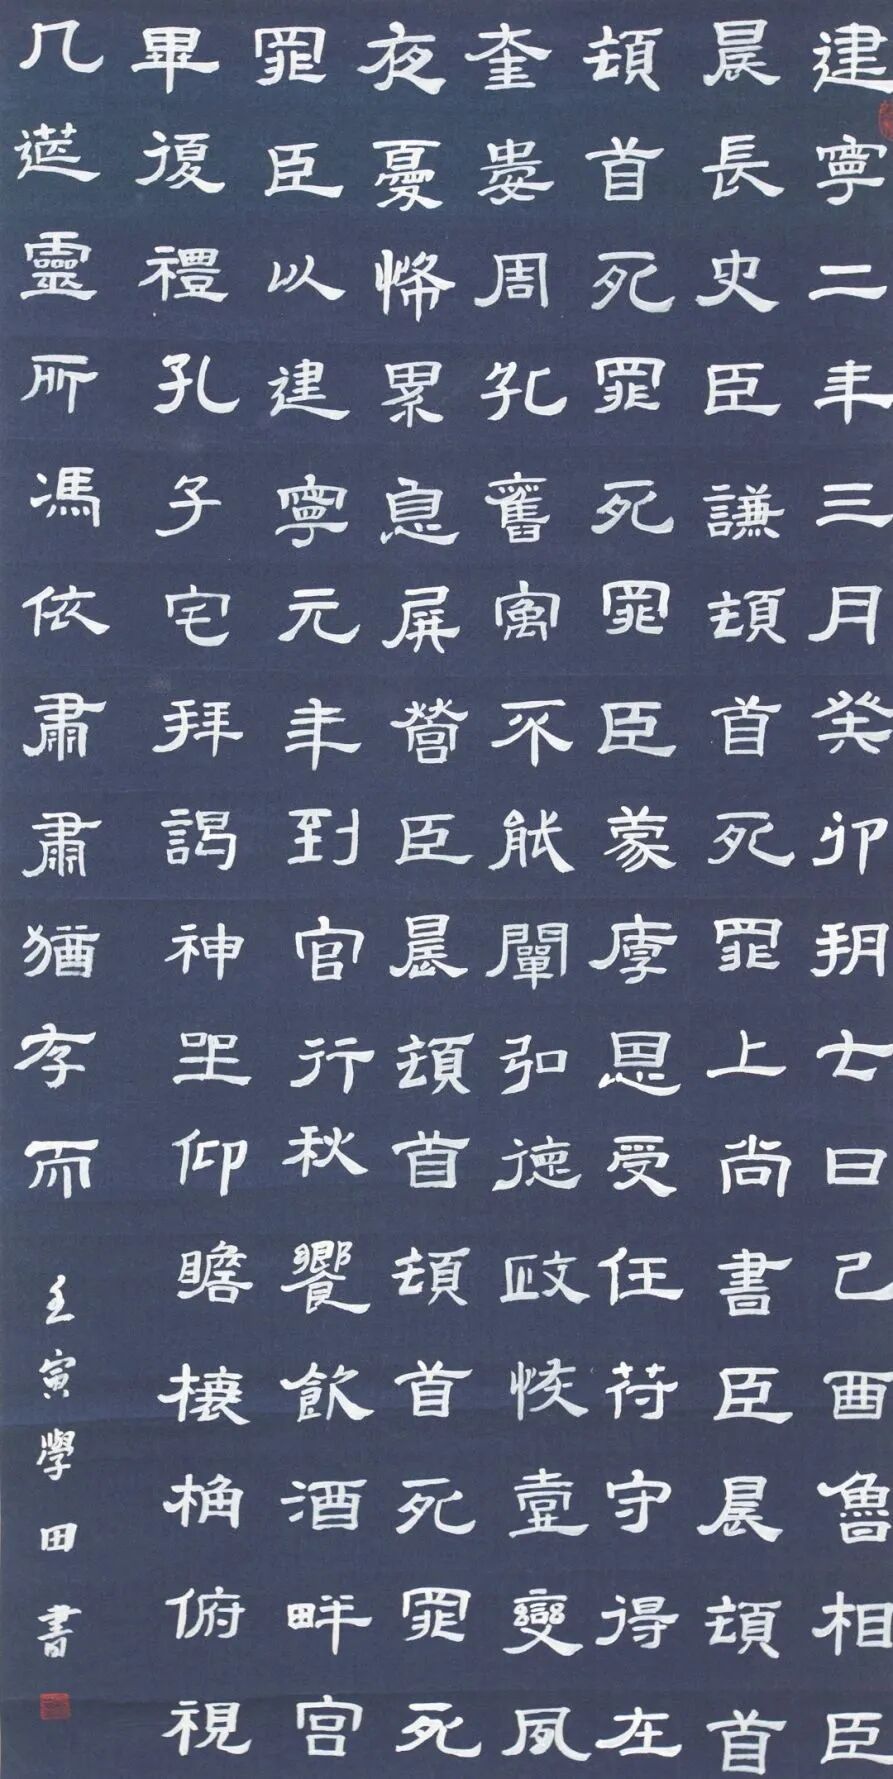 建寧二年三月癸卯朔七日己酉魯相臣
晨長史臣謙頓首死罪上尚書臣晨頓首
頓首死罪死罪臣蒙厚恩受任符守得在
奎婁周孔舊寓不能闡弘德政恢壹變夙
夜憂怖累息屏營臣晨頓首頓首死罪死
罪臣以建寧元年到官行秋饗飲酒畔宮
畢復禮孔子宅拜謁神坐仰瞻榱桷俯視
几筵靈所馮依肅肅猶存而
壬寅學田書